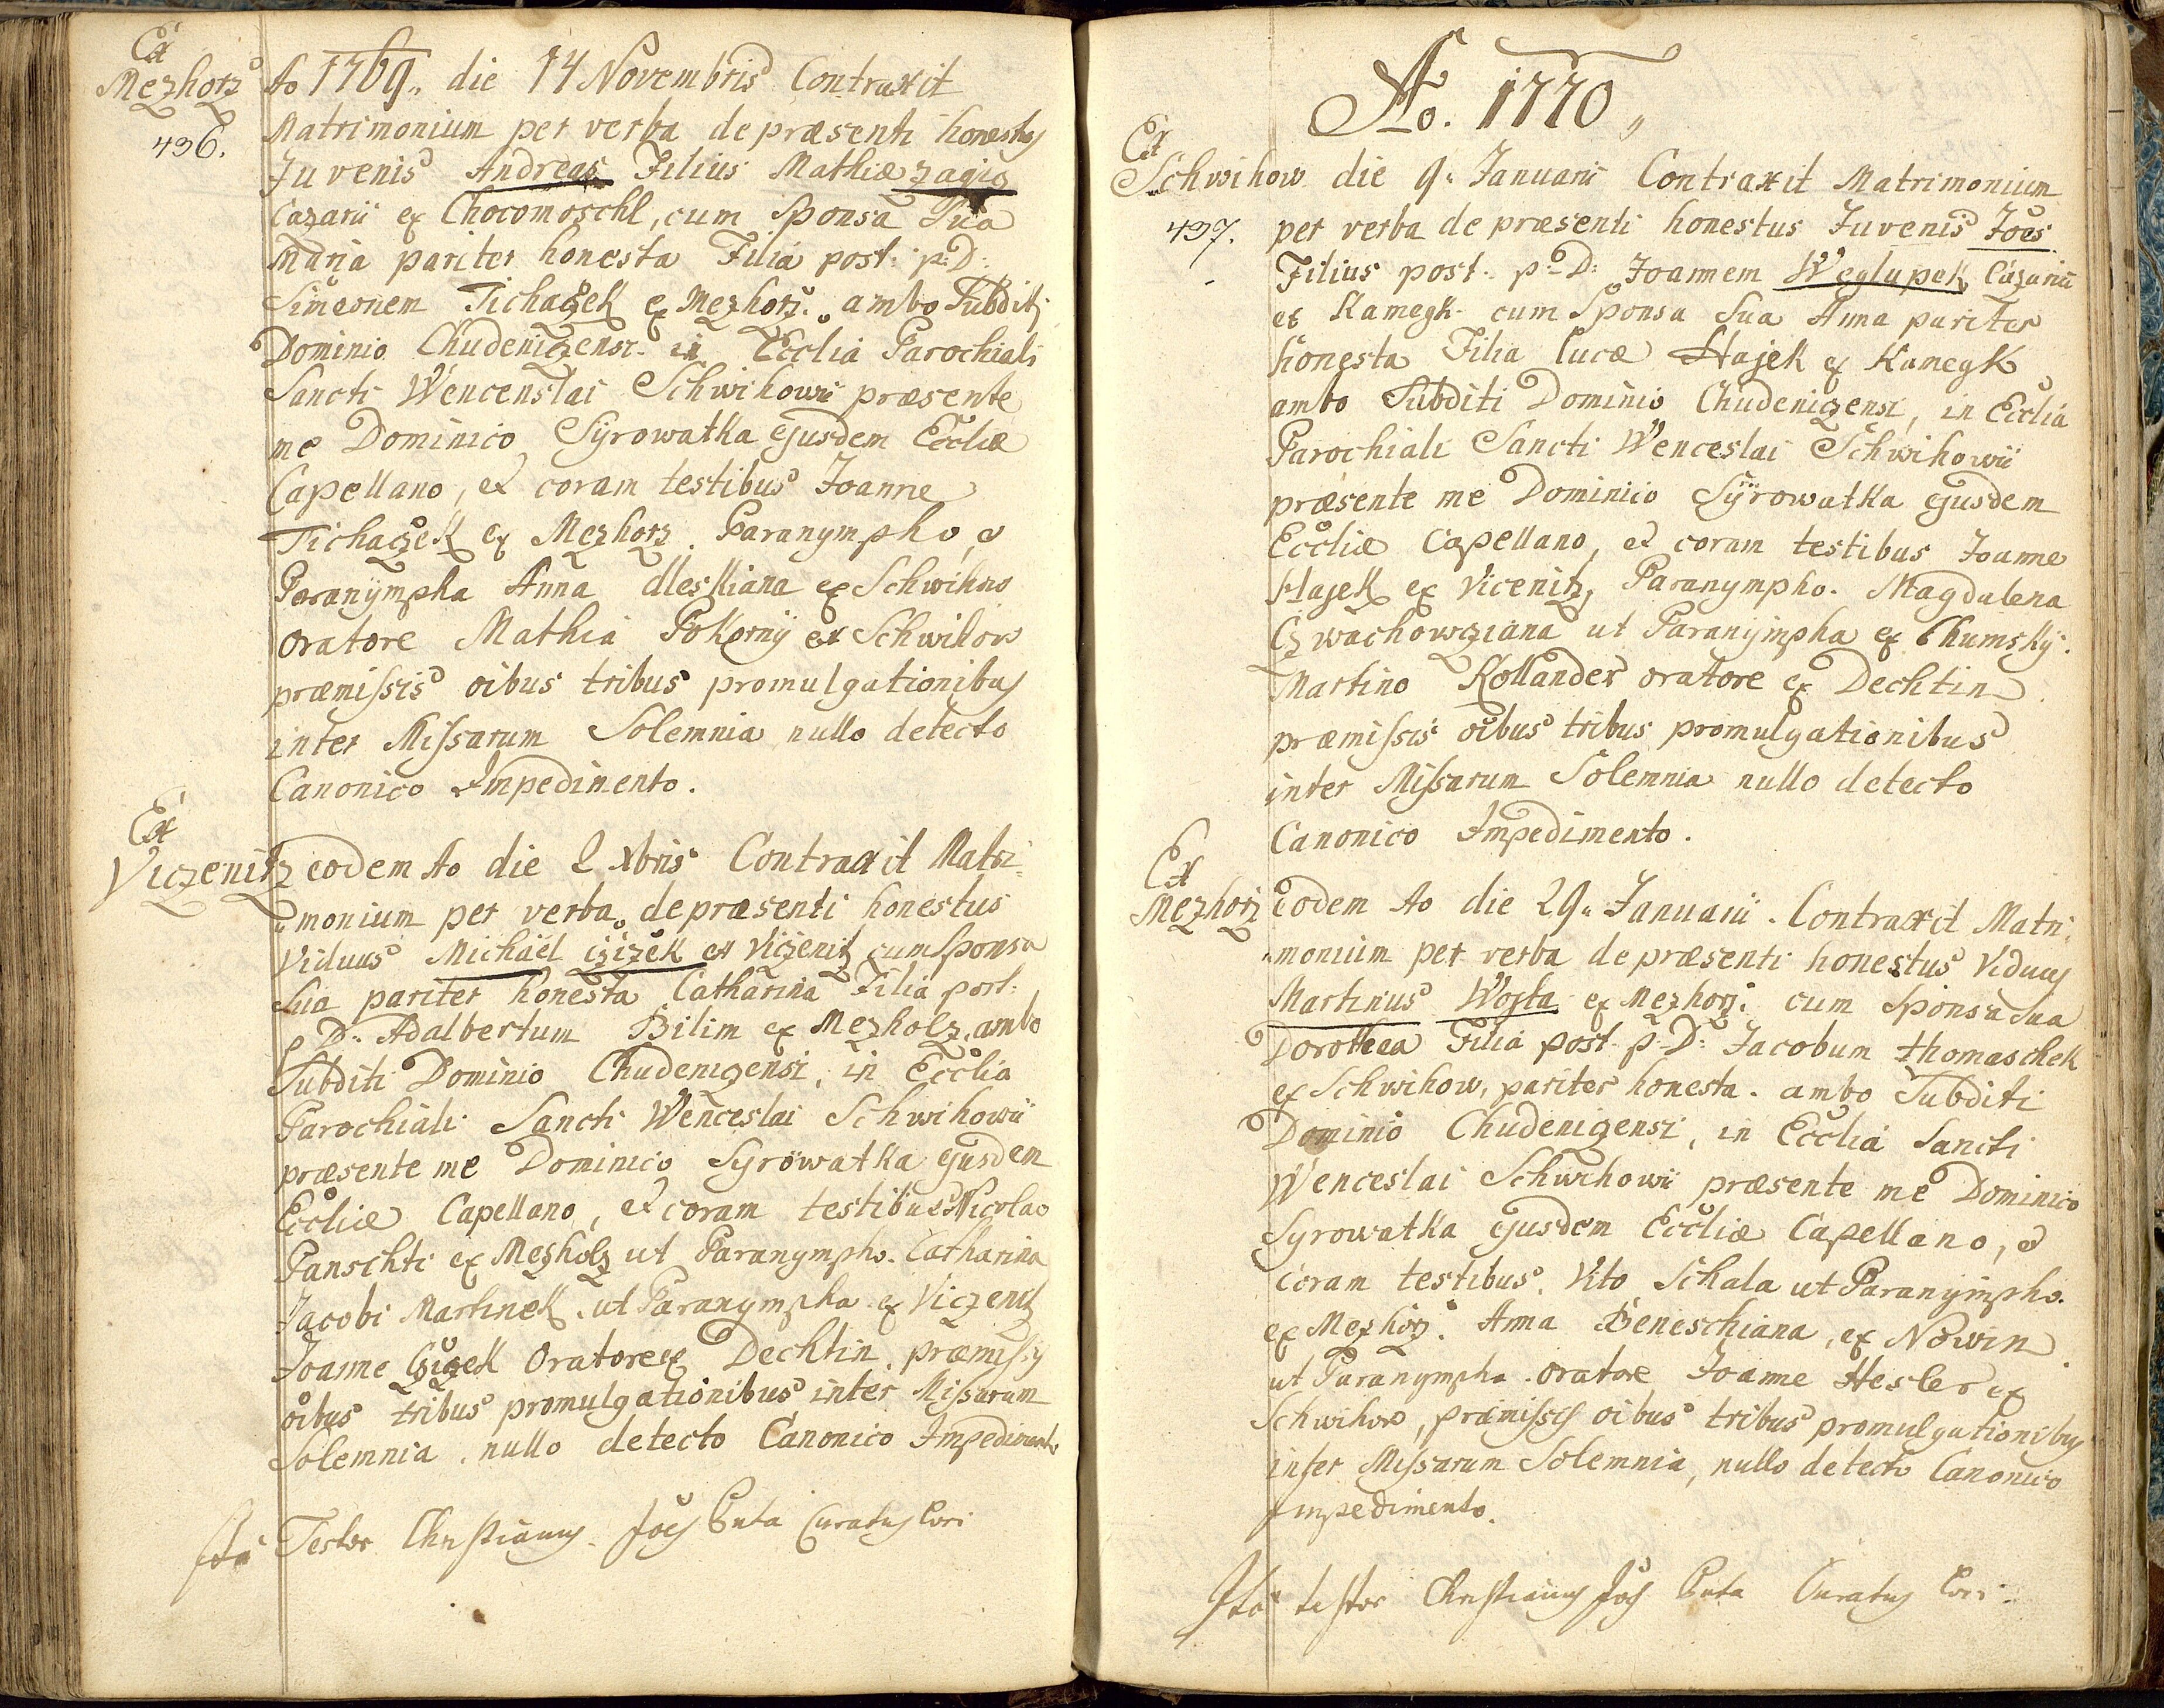 Ex
Mezhorz
436.
Ao 1769„ die 14 Novembris Contraxit
Matrimonium per verba de præsenti honestus
Juvenis Andreas Filius Mathiæ zagic
Cazarii ex Chocomoschl, cum Sponsa Sua
Maria pariter honesta Filia post: p: D:
Simeonem Tichaczek ex Mezhorz. ambo Subditi
Dominio Chudeniczensi in Ecclia Parochiali
Sancti Wencenslai Schwihowii præsente
me Dominico Sÿrowatka ejusdem Eccliæ
Capellano, et coram testibus Joanne
Tichaczek ex Mezhorz. Paranympho, et
Paranÿmpha Anna dleskiana ex Schwihow
Oratore Mathia Pokornÿ ex Schwihow
præmissis oibus tribus promulgationibus
inter Missarum Solemnia nullo detecto
Canonico Impedimento.
Ex
Viczenitz
eodem Ao die 2 Xbris Contraxit Matri
monium per verba de præsenti honestus
Viduus Michaël cžizek ex Viczenitz cum Sponsa
Sua pariter honesta Catharina Filia post:
p D: Adalbertum Bilim ex Mezholz, ambo
Subditi Dominio Chudeniczensi, in Ecclia
Parochiali Sancti Wenceslai Schwihowii
præsente me Dominico Syrowatka ejusdem
Eccliæ Capellano, et coram testibus Nicolao
Panschti ex Mezholz ut Paranympho. Catharina
Jacobi Martinek. ut Paranympha ex Viczenitz
Joanne Cžizek Oratore ex Dechtin, præmissis
oibus tribus promulgationibus inter Missarum
Solemnia, nullo detecto Canonico Impedimento
Ita Testor Christianus Joes Puta Curatus loci
Ao. 1770„
Ex
Schwihow
437.
die 9. Januarii Contraxit Matrimonium
per verba de præsenti honestus Juvenis Joes
Filius post. p: D: Joannem Weglupek Cazarii
ex Kamegk cum Sponsa Sua Anna pariter
honesta Filia lucæ Hajek ex Kamegk
ambo Subditi Dominio Chudeniczensi, in Ecclia
Parochiali Sancti Wenceslai Schwihowii
præsente me Dominico Sÿrowatka ejusdem
Eccliæ Capellano, et coram testibus Joanne
Hajek ex Vicenitz, Paranympho. Magdalena
Czwachowcziana ut Paranÿmpha ex Chumskÿ.
Martino Kollander oratore ex Dechtin
præmissis oibus tribus promulgationibus
inter Missarum Solemnia nullo detecto
Canonico Impedimento.
Ex
Mezhorz
Eodem Ao die 29. Januarii. Contraxit Matri
monium per verba de præsenti honestus Viduus
Martinus Wojta ex Mezhorz. cum Sponsa Sua
Dorothea Filia post. p: D: Jacobum thomaschek
ex Schwihow, pariter honesta. ambo Subditi
Dominio Chudeniczensi, in Ecclia Sancti
Wenceslai Schwihowii præsente me Dominico
Syrowatka ejusdem Eccliæ Capellano, et
coram testibus. Vito Schala ut Paranÿmpho.
ex Mezhorz. Anna Beneschiana, ex Nowin
ut Paranympha. Oratore Joanne Hesler ex
Schwihow, præmissis oibus tribus promulgationibus
inter Missarum Solemnia, nullo detecto Canonico
Impedimento.
Ita testor Christianus Joes Puta Curatus loci